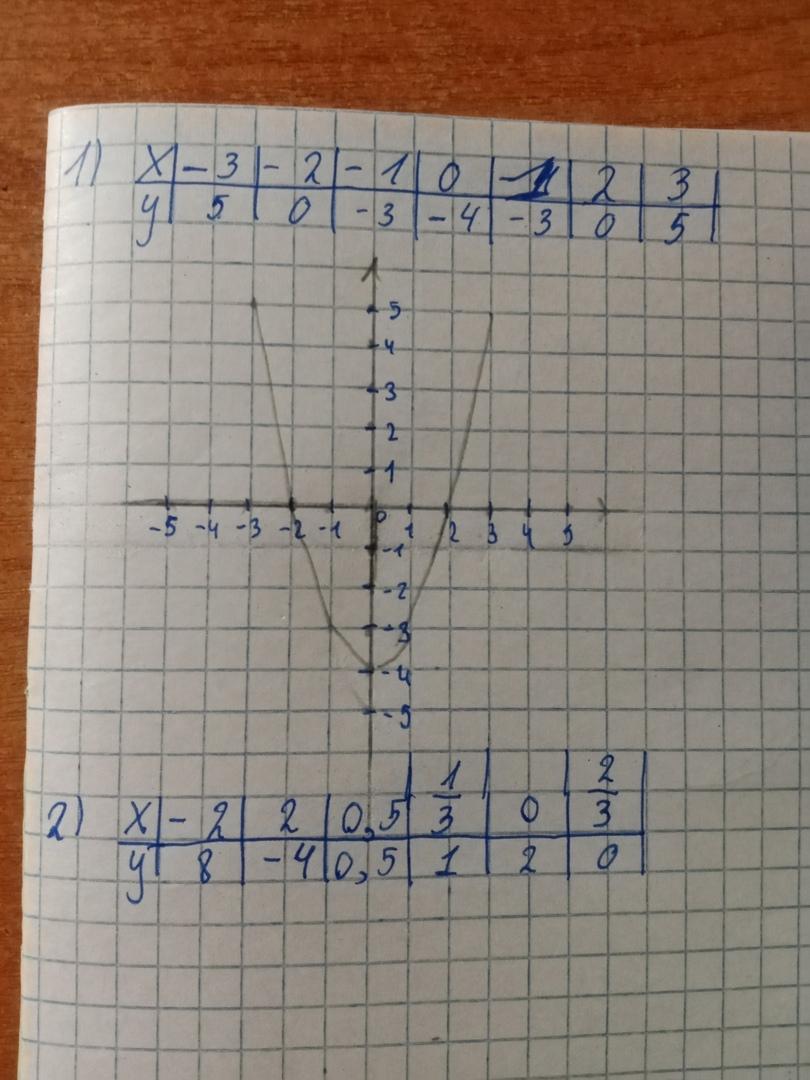 1) x -3 -2 -1 0 1 2 3
y 5 0 -3 -4 -3 0 5
5
4
3
2
1
-5 -4 -3 -2 -1 0 1 2 3 4 5
-1
-2
-3
-4
-5
2) x -2 2 0,5 1/3 0 2/3
y 8 -4 0,5 1 2 0